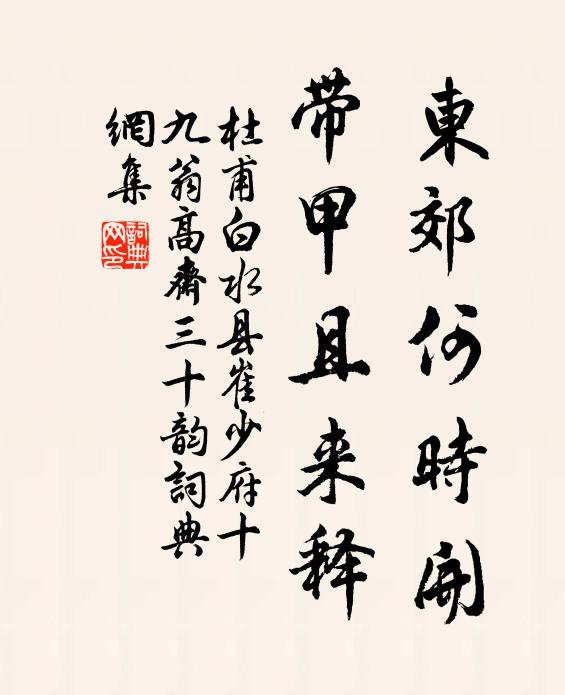 東郊何時開
带甲且来释
杜甫白水县崔少府十
九翁高齋三十韵詞典
網集
詞典
网印